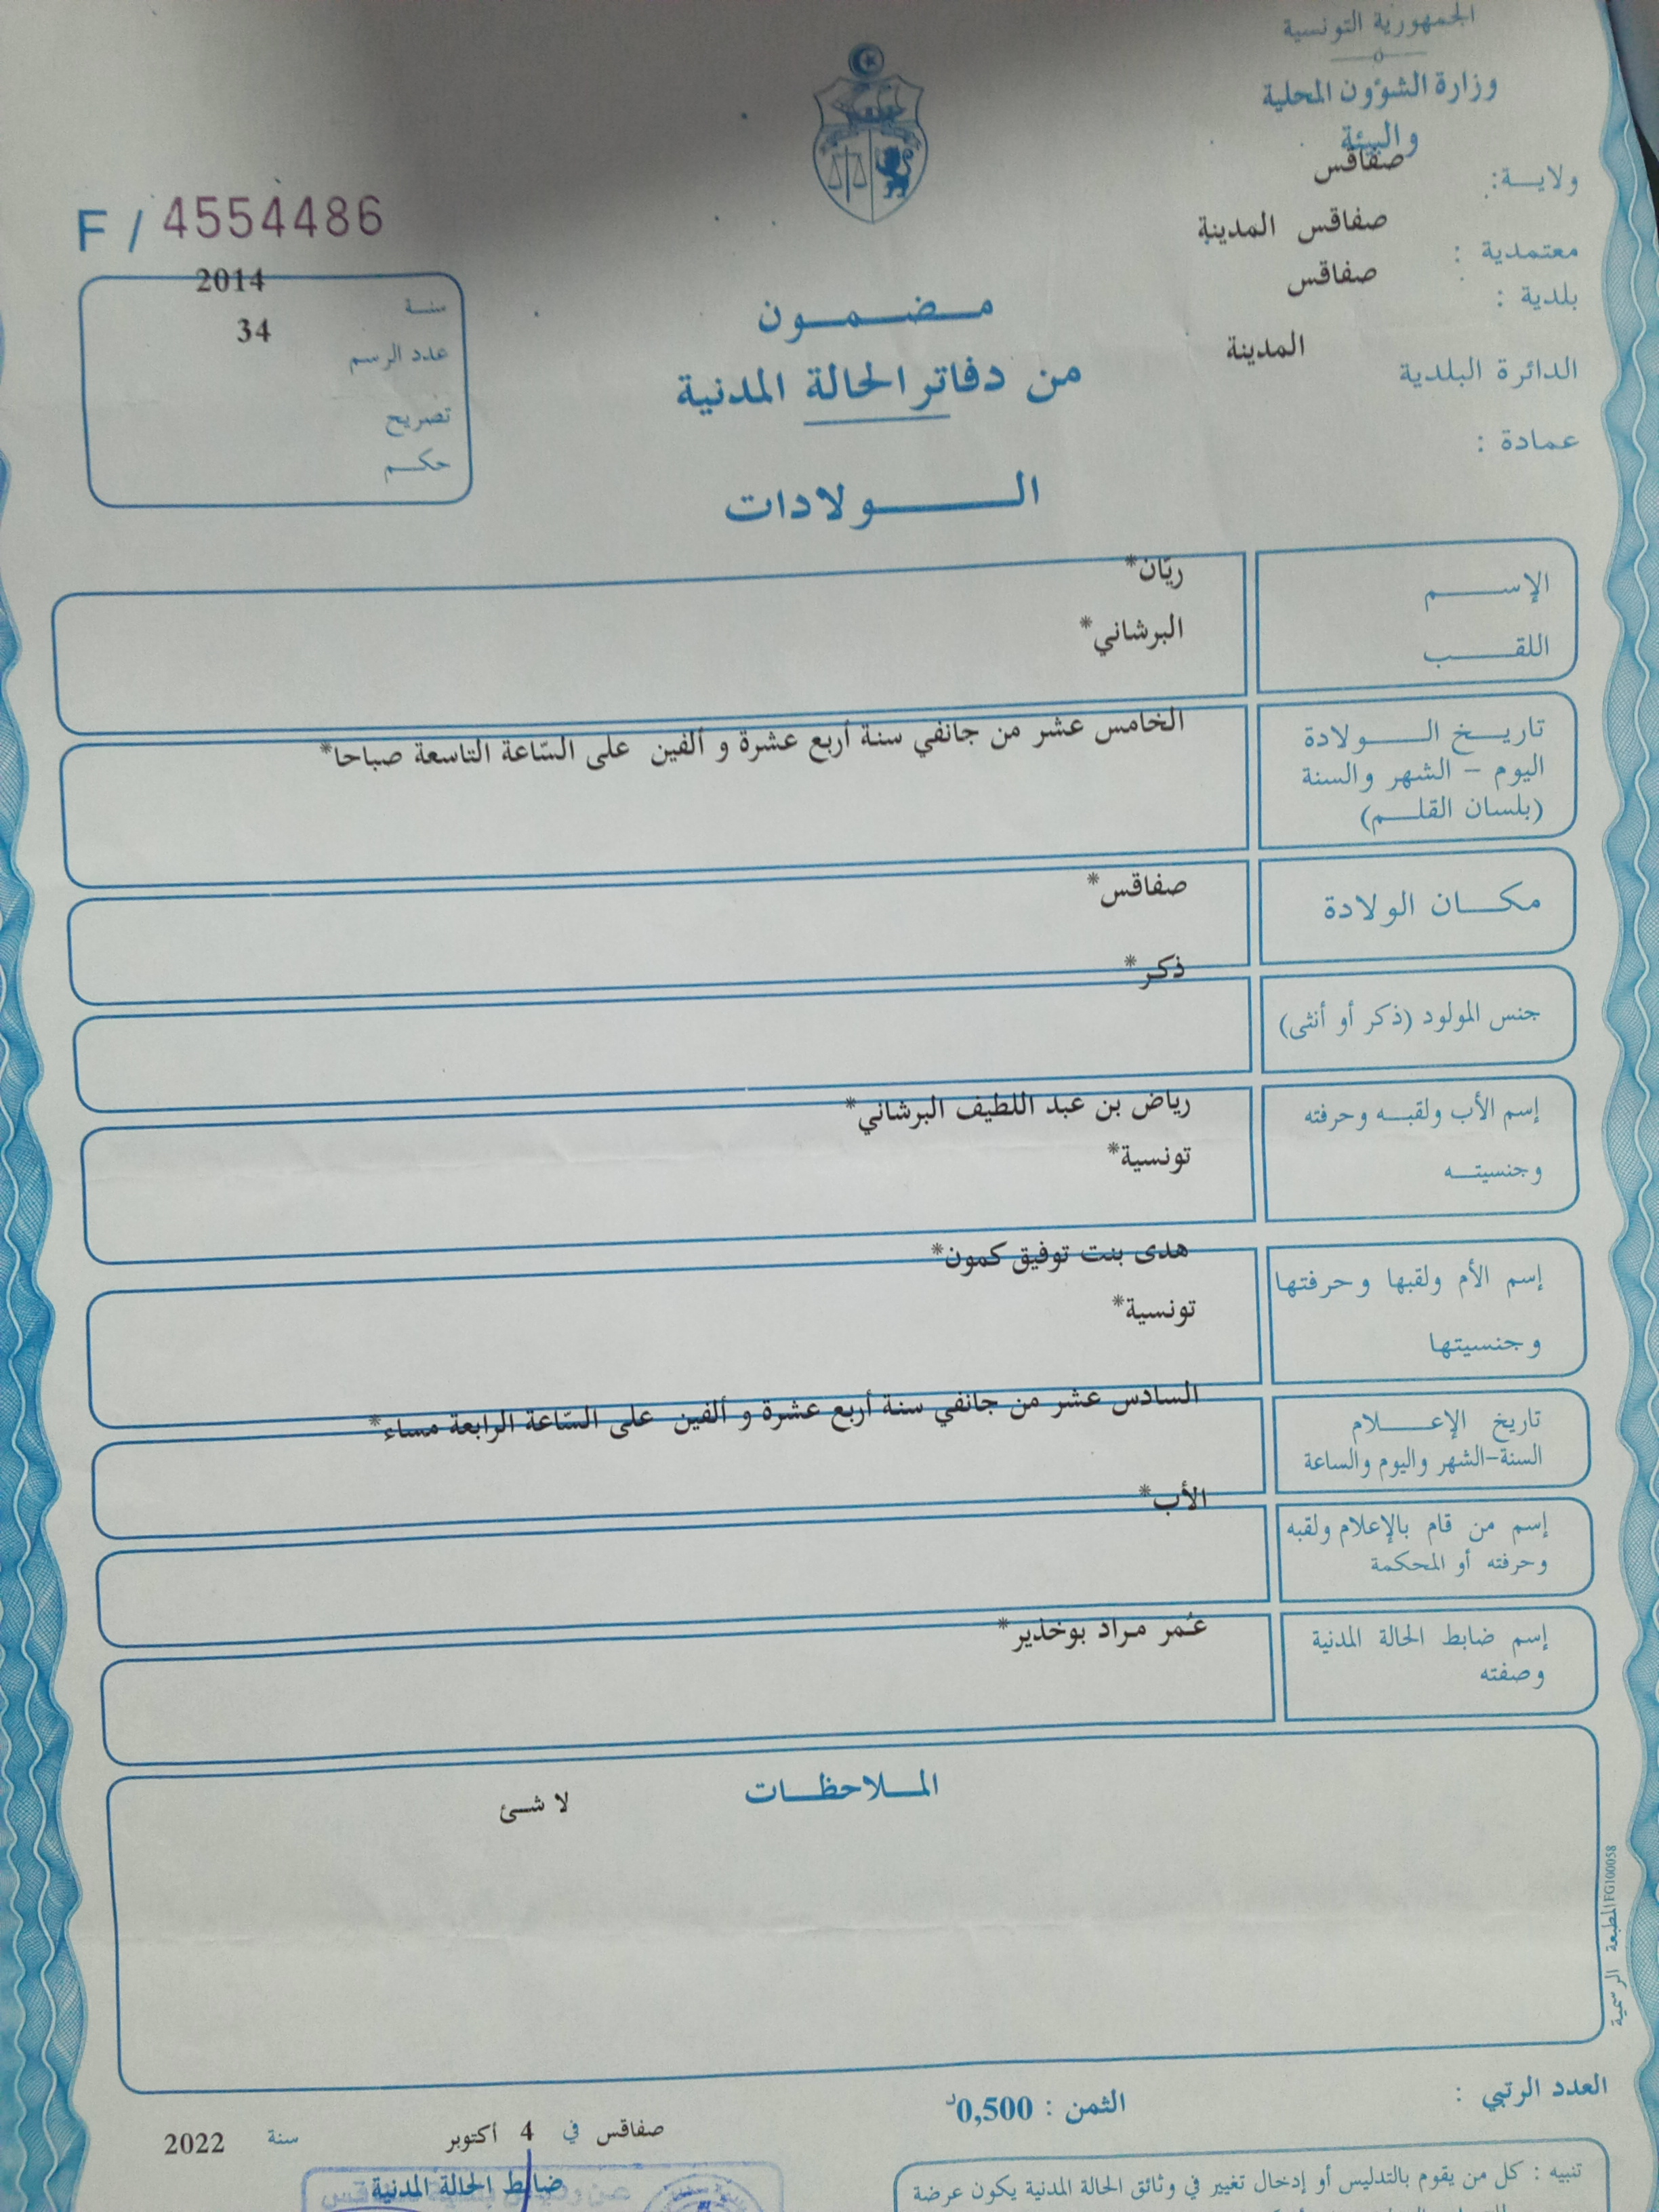 الجمهورية التونسية
وزارة الشؤون المحلية
والبيئة
ولاية: صفاقس
معتمدية : صفاقس المدينة
بلدية : صفاقس
الدائرة البلدية المدينة
عمادة :
F / 4554486
سنة 2014
عدد الرسم 34
تصريح
حكم
مضمون
من دفاتر الحالة المدنية
الولادات
الإسم ريّان*
اللقب البرشاني*
تاريخ الولادة
اليوم - الشهر والسنة
(بلسان القلم)
الخامس عشر من جانفي سنة أربع عشرة و ألفين على السّاعة التاسعة صباحا*
مكان الولادة صفاقس*
جنس المولود (ذكر أو أنثى) ذكر*
إسم الأب ولقبه وحرفته رياض بن عبد اللطيف البرشاني*
وجنسيته تونسية*
إسم الأم ولقبها وحرفتها هدى بنت توفيق كمون*
وجنسيتها تونسية*
تاريخ الإعلام
السنة-الشهر واليوم والساعة
السادس عشر من جانفي سنة أربع عشرة و ألفين على السّاعة الرابعة مساء*
إسم من قام بالإعلام ولقبه
وحرفته أو المحكمة
الأب*
إسم ضابط الحالة المدنية
وصفته
عُمر مراد بوخذير*
الملاحظات
لا شئ
المطبعة الرسمية FG100058
العدد الرتبي :
الثمن : 0,500د
صفاقس في 4 أكتوبر سنة 2022
ضابط الحالة المدنية
تنبيه : كل من يقوم بالتدليس أو إدخال تغيير في وثائق الحالة المدنية يكون عرضة